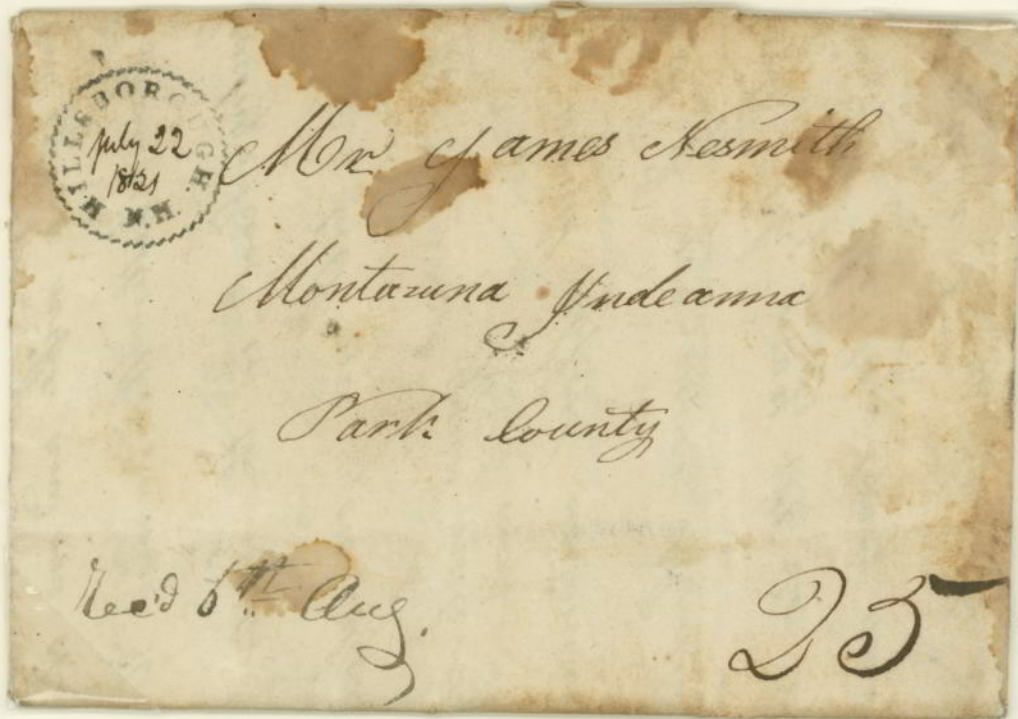 HILLSBOROUGH. N.H.
July 22
1831
Mr James Nesmith
Montazuna Indeanna
Park County
Rec'd 6th Aug.
25